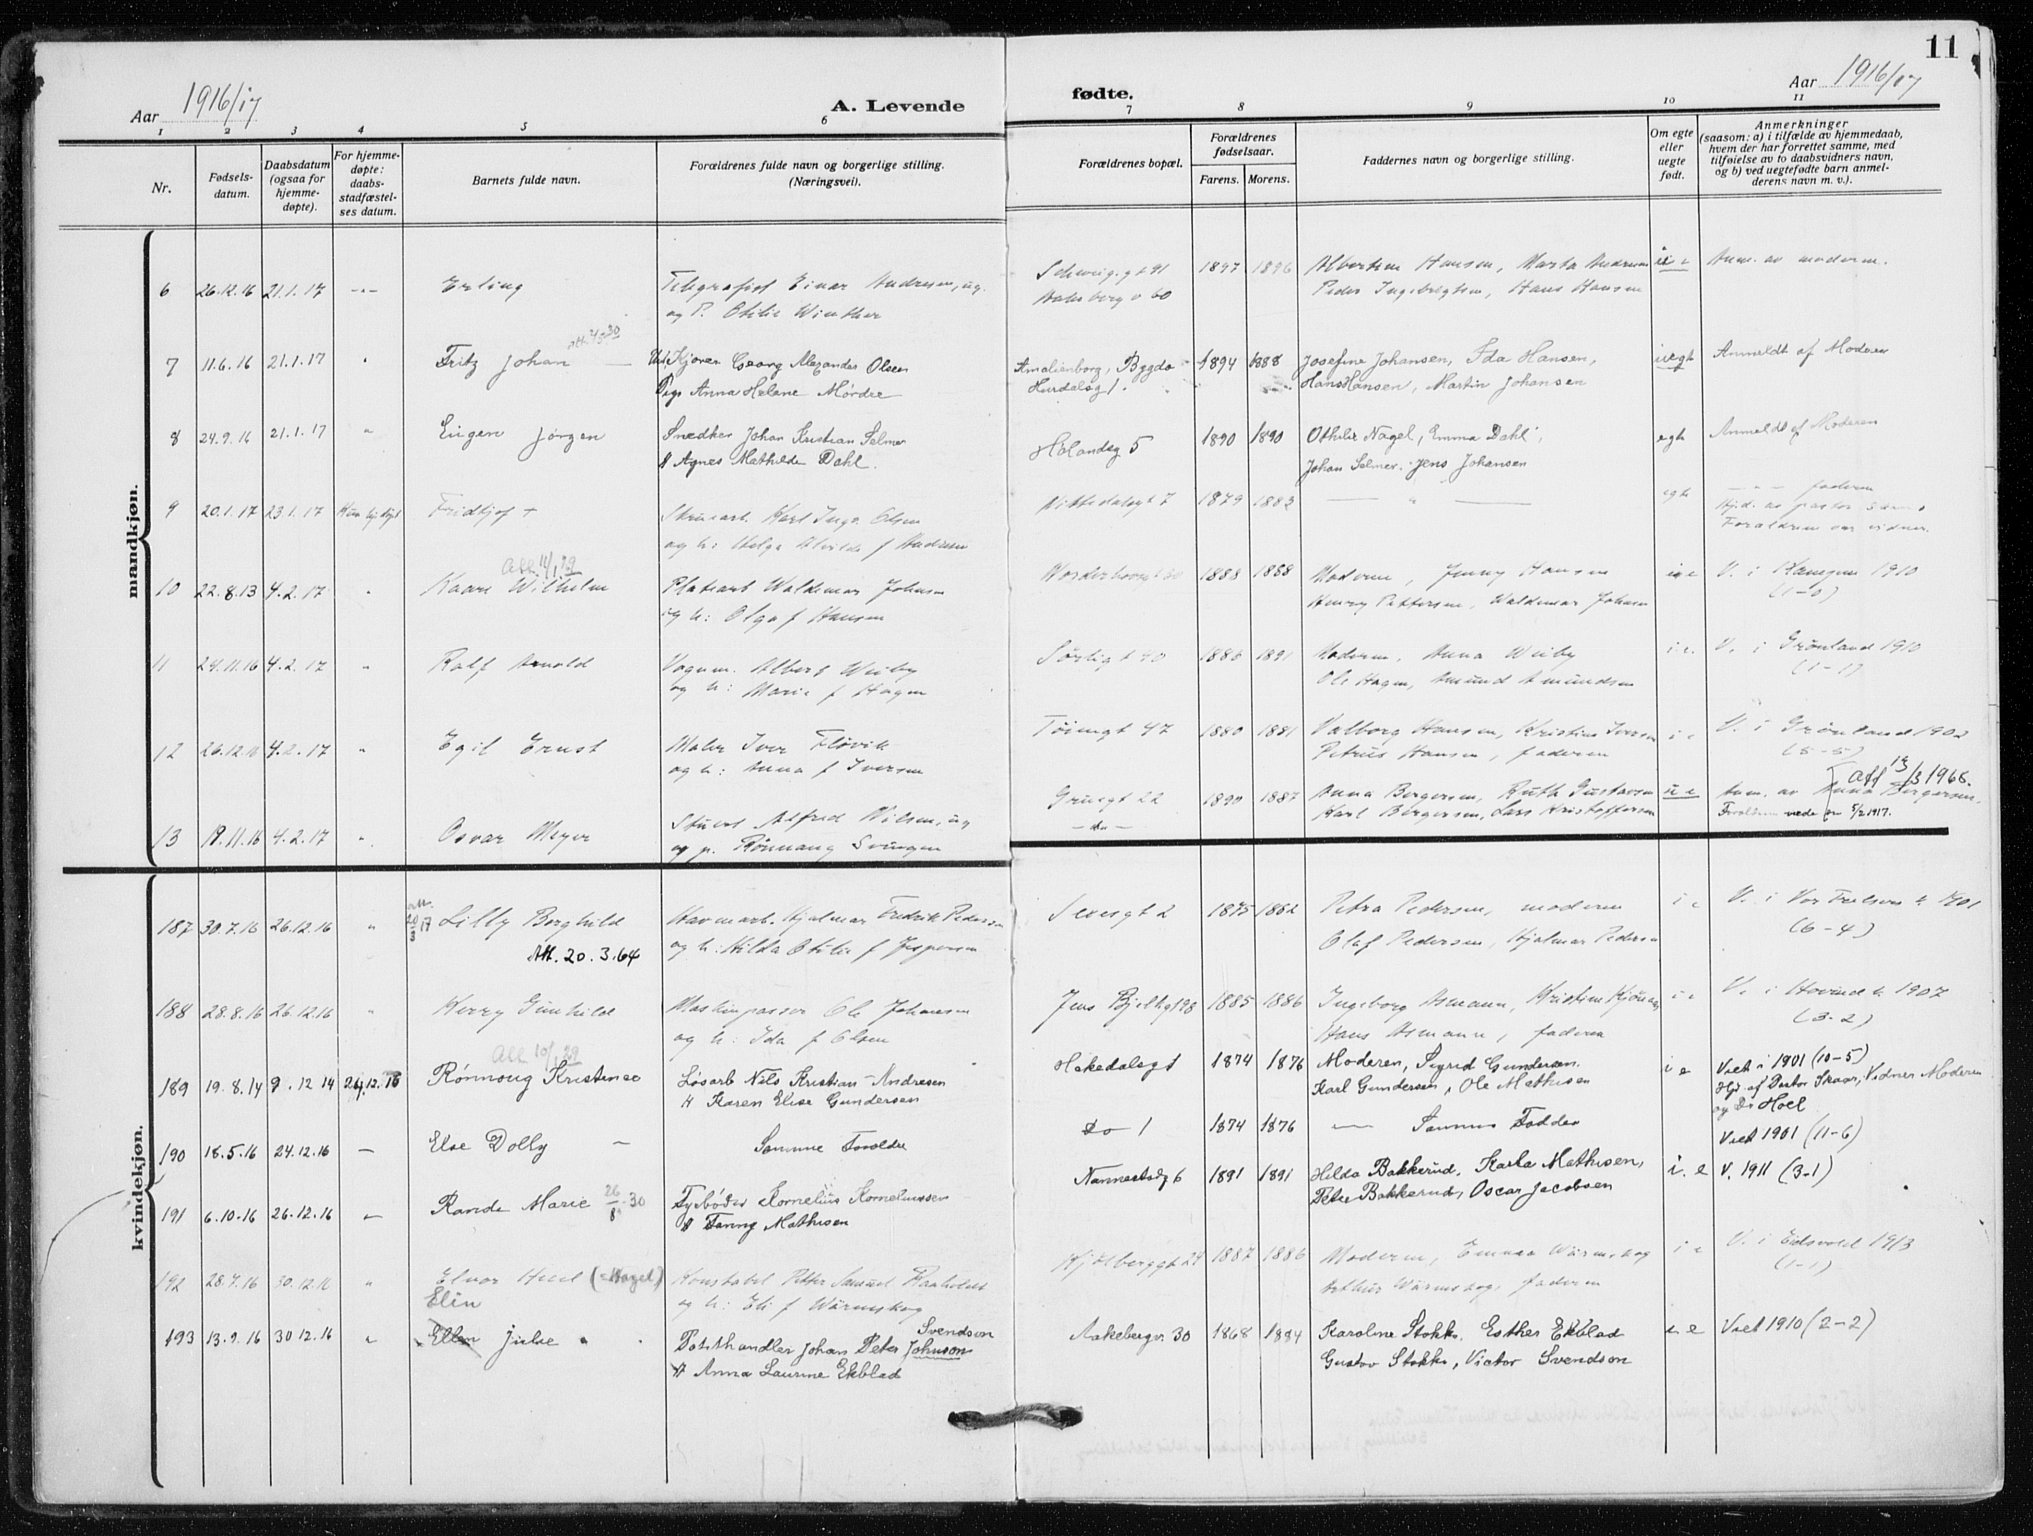 11
Aar 1916/17
A. Levende
fødte.
Aar 1916/17
1 2 3 4 5 6 7 8 9 10 11
Nr.
Fødsels-
datum.
Daabsdatum
(ogsaa for
hjemme-
døpte).
For hjemme-
døpte:
daabs-
stadfæstel-
ses datum.
Barnets fulde navn.
Forældrenes fulde navn og borgerlige stilling.
(Næringsvei).
Forældrenes bopæl.
Forældrenes
fødselsaar.
Farens. Morens.
Faddernes navn og borgerlige stilling.
Om egte
eller
uegte
født.
Anmerkninger
(saasom: a) i tilfælde av hjemmedaab,
hvem der har forrettet samme, med
tilføielse av to daabsvidners navn,
og b) ved uegtefødte barn anmel-
derens navn m. v.).
mandkjøn.
6 26.12.16 21.1.17 -"- Erling Telegrafist Einar Andresen, ug. Schweig.gt 91 1897 1896 Albertine Hansen, Marta Andresen Anm. av moderen.
og P. Otilie Winther 60 Peder Ingebregtsen, Hans Hansen
7 11.6.16 21.1.17 " Fritz Johan Kjører Georg Alexander Olsen Amalienborg, Bygdø 1894 1888 Josefine Johansen, Ida Hansen, uegt Anmeldt af Moderen
Pige Anna Helene Mørdre Hurdalsg 1. Hans Hansen, Martin Johansen
8 24.9.16 21.1.17 " Eugen Jørgen Snedker Johan Kristian Selmer Hølandsg 5 1890 1890 Othilie Nagel, Emma Dahl, egte Anmeldt af Moderen
H Agnes Mathilde Dahl. Johan Selmer. Jens Johansen
9 20.1.17 23.1.17 Fridtjof + Karl Inge Olsen Nittedalsgt 7 1879 1883 — " — egte — " — faderen
og h: Helga Alvilde f Andresen Hjd. av pastor
Forældrene var vidner.
10 22.8.13 4.2.17 " Kaare Wilhelm Platearb Waldemar Johnsen 1888 1888 Moderen, Jenny Hansen V. i Kampen 1910
og h: Olga f Hansen Henry Pettersen, Waldemar Johnsen (1-0)
11 24.11.16 4.2.17 " Rolf Arnold Vognm. Albert Wiiby Sørligt 40 1886 1891 Moderen, Anna Wiiby i e. V. i Grønland 1910
og h: Marie f Hagen Ole Hagen, Amund Amundsen (1-1)
12 26.12.16 4.2.17 " Egil Ernst Maler Iver Fløvik Tøiengt 47 1880 1881 Valborg Hansen, Kristine Iversen i e V. i Grønland 1902
og h: Anna f Iversen Petrus Hansen, faderen (5-5)
Att 13/3 1968.
13 19.11.16 4.2.17 " Osvar Meyer Stuert Alfred Nilsen, ug Gruegt 22 1890 1887 Anna Bergersen, Ruth Gustavsen u e Anm. av Anna Bergersen,
og p. Rønnaug Svingen -do- Karl Bergersen, Lars Kristoffersen 5/2 1917.
kvindekjøn.
187 30.7.16 26.12.16 " 20/3 17 Lilly Borghild Havnearb. Hjalmar Fredrik Pedersen 1875 1882 Petra Pedersen, moderen i e V. i Vor Frelsers k 1901
Att. 20.3.64 og h: Hilda Otilie f Jespersen Olaf Pedersen, Hjalmar Pedersen (6-4)
188 28.8.16 26.12.16 " Kerry Gunhild Maskinpasser Ole Johansen Jens Bjelkegt 28 1885 1886 Ingeborg Asmann, Kristine i e V. i Hovind k. 1907
og h: Ida f Olsen Hans Asmann, faderen (3-2)
Att 10/1 29
189 19.8.14 9.12 14 26.12.16 Rønnoug Kristense Løsarb Nils Kristian Andresen Hakedalsgt 1874 1876 Moderen, Sigrid Gundersen. i e Viet i 1901 (10-5)
H Karen Elise Gundersen Karl Gundersen, Ole Mathisen Hjd af Pastor Skaar, Vidner Moderen
og Dr Hoel
190 18.5.16 24.12.16 — Else Dolly — Samme Foreldre Do 1 1874 1876 — Samme Faddere Viet 1901 (11-6)
191 6.10.16 26.12.16 — Randi Marie 26/8 - 30 Fyrbøder Kornelius Korneliussen Nannestadg 6 1891 1891 Hilda Bakkerud, Karla Mathisen, i. e V. 1911 (3-1)
H Fanny Mathisen Peter Bakkerud, Oscar Jacobsen
192 28.7.16 30.12.16 " Konstabel Petter Samuel Raaholdt Kjølberggt 24 1887 1886 Moderen, Emma Wärmskog i e V. i Eidsvold 1913
og h: Eli f Wärmskog Arthur Wärmskog, faderen (1-1)
Elin
193 13.9.16 30 12.16 " Ellen Julie " Svendson
Johan Peter Johnson Aakebergv. 30 1868 1884 Karoline Stokke. Esther Ekblad i e Viet 1910 (2-2)
H Anna Laurine Ekblad Gustav Stokke, Victor Svendson